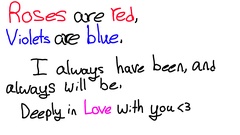 Roses are red,
Violets are blue.
I always have been, and
always will be.
Deeply in Love with you <3